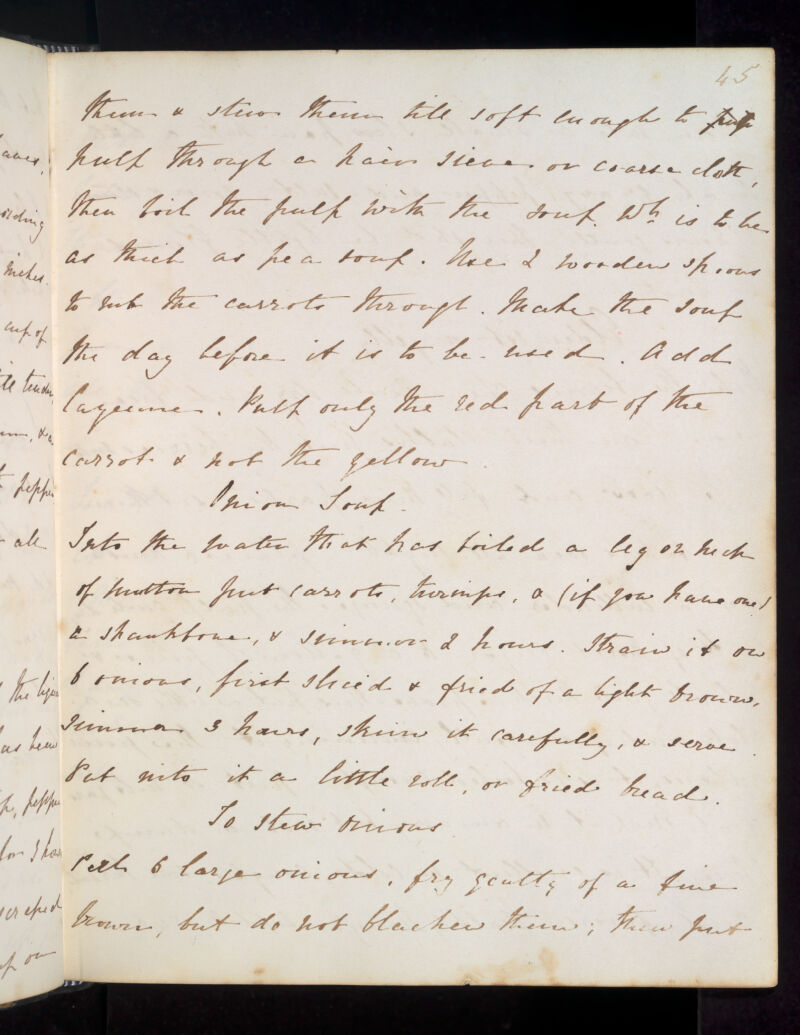 45
aves,
ording
inches.
cup of
till tender,
peppe
all
the liqu
has been
peppe
for 3 hou
scraped
up on
them & stew them till soft enough to pulp
pulp through a hair sieve or coarse cloth,
then boil the pulp with the soup. Wh is to be
as thick as pea soup. Use 2 wooden spoons
to rub the carrots through. Make the soup
the day before it is to be used. Add
Cayenne. Pulp only the red part of the
carrot & not the yellow.
Onion Soup.
Into the water that has boiled a leg or neck
of mutton put carrots, turnips, & (if you have one)
a shankbone, & simmer 2 hours. Strain it on
6 onions, first sliced & fried of a light brown,
simmer 3 hours, skim it carefully, & serve.
Put into it a little roll, or fried bread.
To stew Onions.
Peel 6 large onions, fry gently of a fine
brown, but do not blacken them; then put